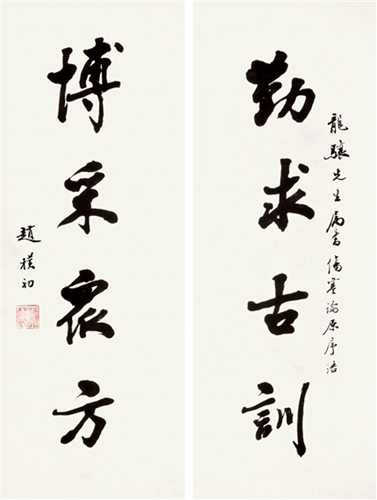 龍驤先生属書傷寒論原序語
勤求古訓
博采衆方
趙樸初